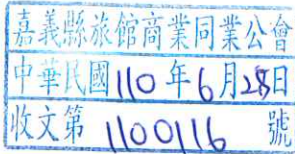 嘉義縣旅館商業同業公會
中華民國110年6月28日
收文第1100116號